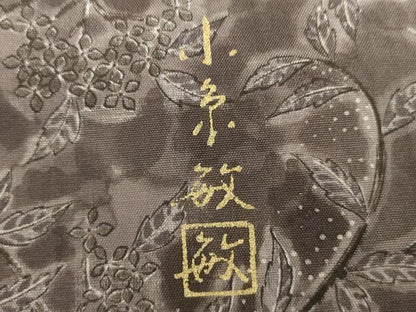 小糸敏
敏